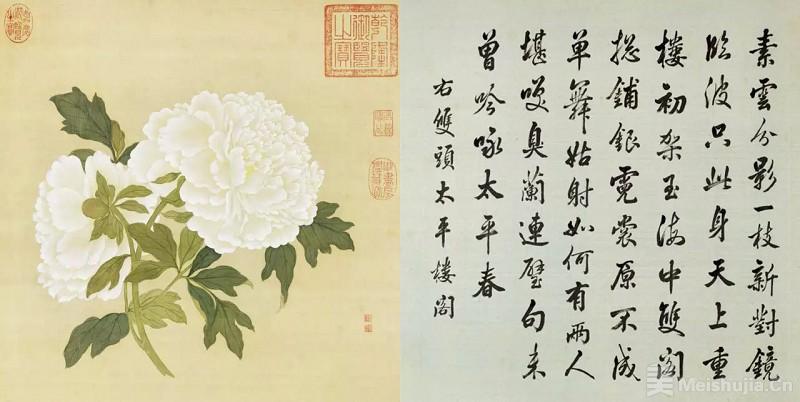 素雲分影一枝新對鏡
臨波只此身天上重
樓初架玉海中雙閣
捴鋪銀霓裳原不成
单舞姑射如何有兩人
堪咲臭蘭連璧句未
曾吟咏太平春
右雙頭太平樓閣
乾隆御覽之寶
美 Meishujia.Cn